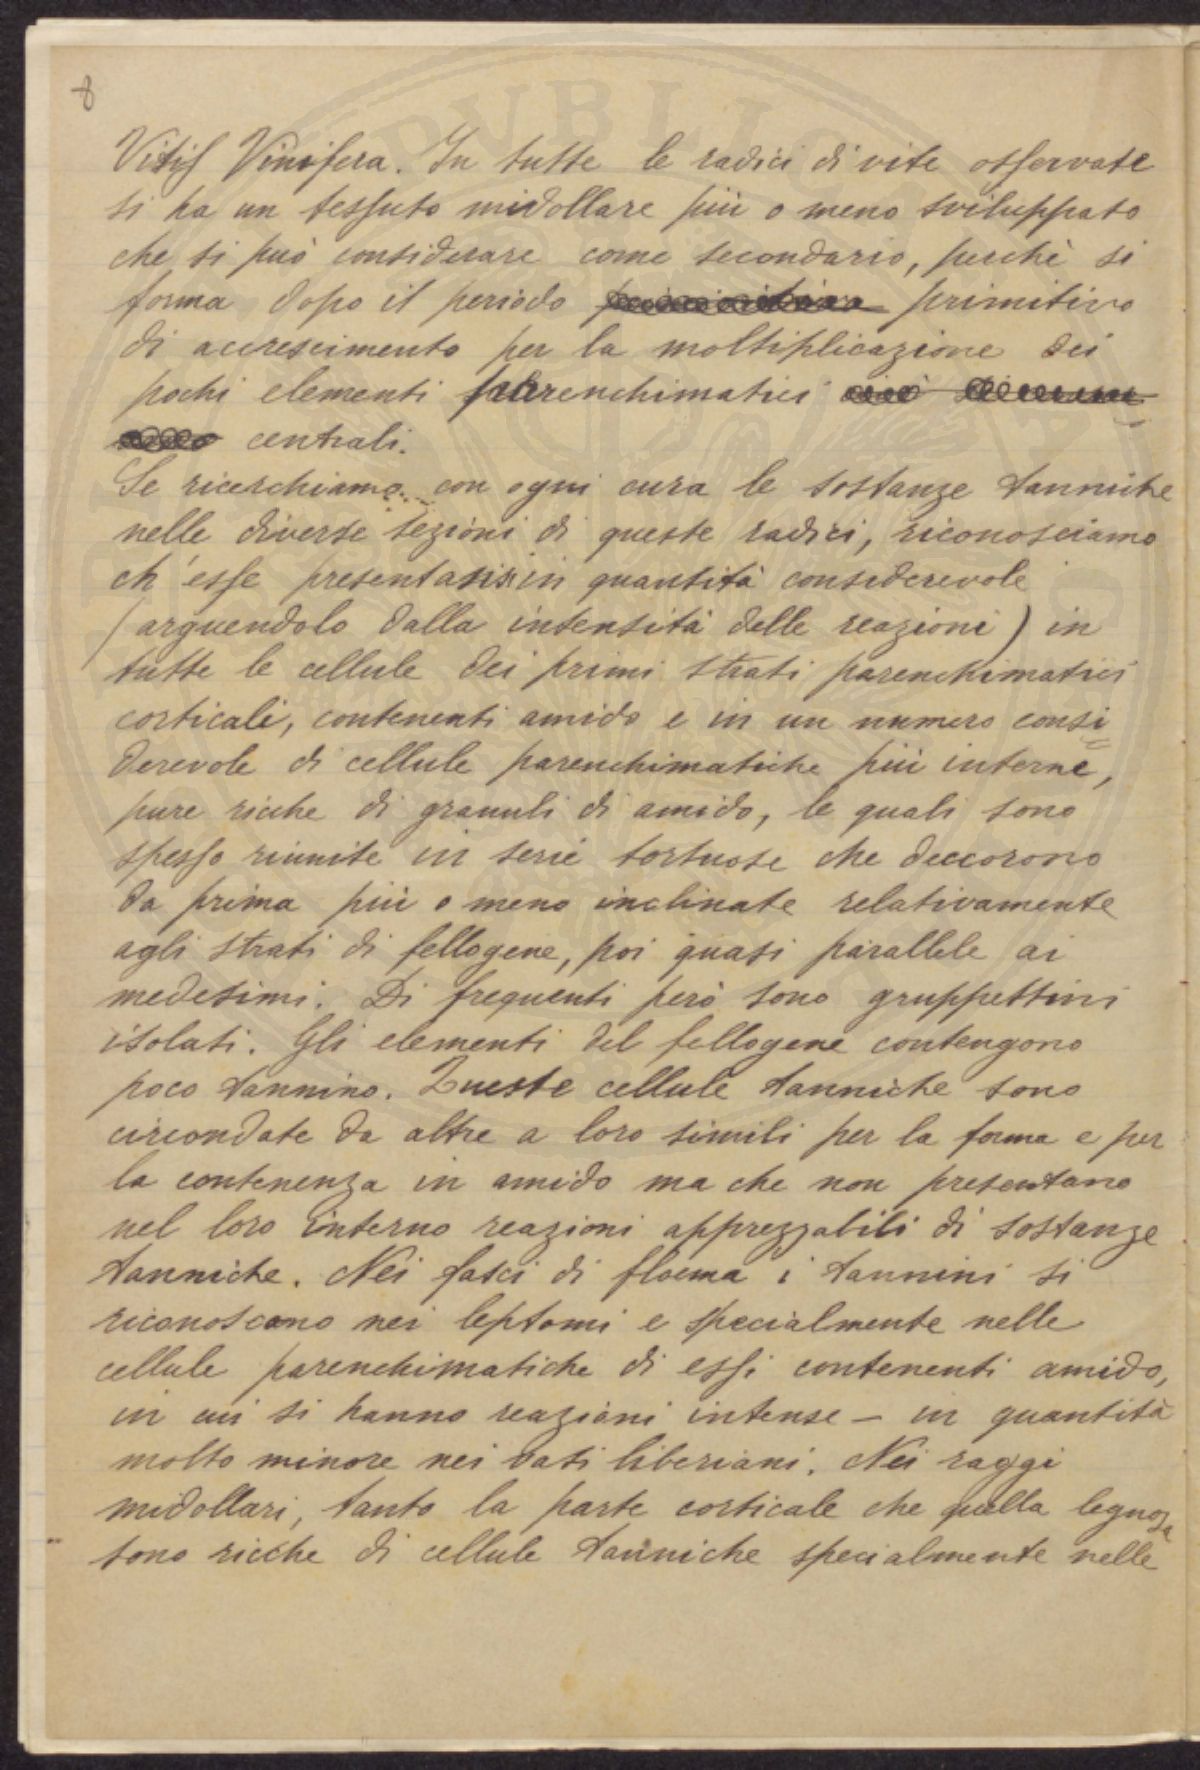 8
Vitis Vinifera. In tutte le radici di vite osservate
si ha un tessuto midollare più o meno sviluppato
che si può considerare come secondario, perchè si
forma dopo il periodo primitivo
di accrescimento per la moltiplicazione dei
pochi elementi parenchimatici
centrali.
Se ricerchiamo con ogni cura le sostanze tanniche
nelle diverse sezioni di queste radici, riconosciamo
ch'esse presentansi in quantità considerevole
(arguendolo dalla intensità delle reazioni) in
tutte le cellule dei primi strati parenchimatici
corticali, contenenti amido e in un numero consi
derevole di cellule parenchimatiche più interne,
pure ricche di granuli di amido, le quali sono
spesso riunite in serie tortuose che deccorono
da prima più o meno inclinate relativamente
agli strati di fellogene, poi quasi parallele ai
medesimi. Di frequenti però sono gruppettini
isolati. Gli elementi del fellogene contengono
poco tannino. Queste cellule tanniche sono
circondate da altre a loro simili per la forma e per
la contenenza in amido ma che non presentano
nel loro interno reazioni apprezzabili di sostanze
tanniche. Nei fasci di floema i tannini si
riconoscono nei leptomi e specialmente nelle
cellule parenchimatiche di essi contenenti amido,
in cui si hanno reazioni intense – in quantità
molto minore nei vasi liberiani. Nei raggi
midollari, tanto la parte corticale che quella legnosa
sono ricche di cellule tanniche specialmente nelle
PUBLIC